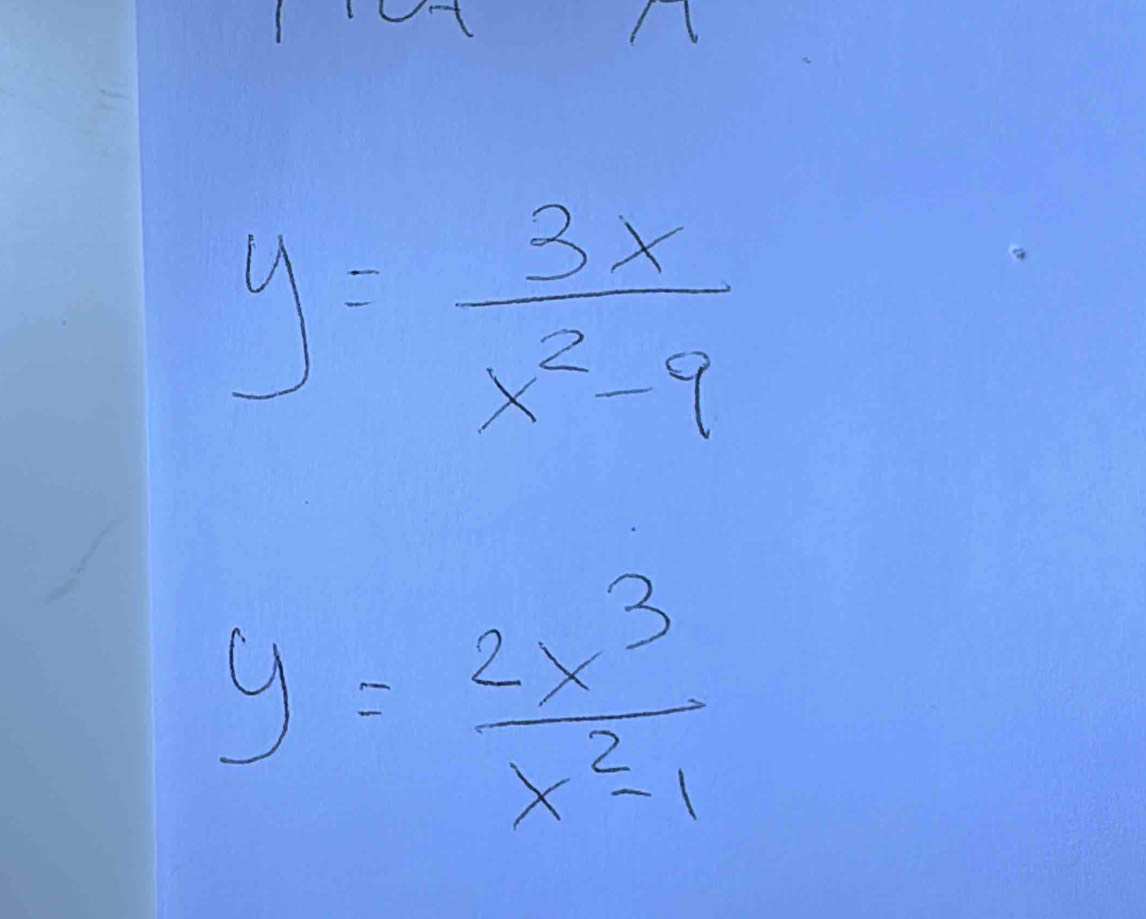 y = 3x / x² - 9
y = 2x³ / x² - 1